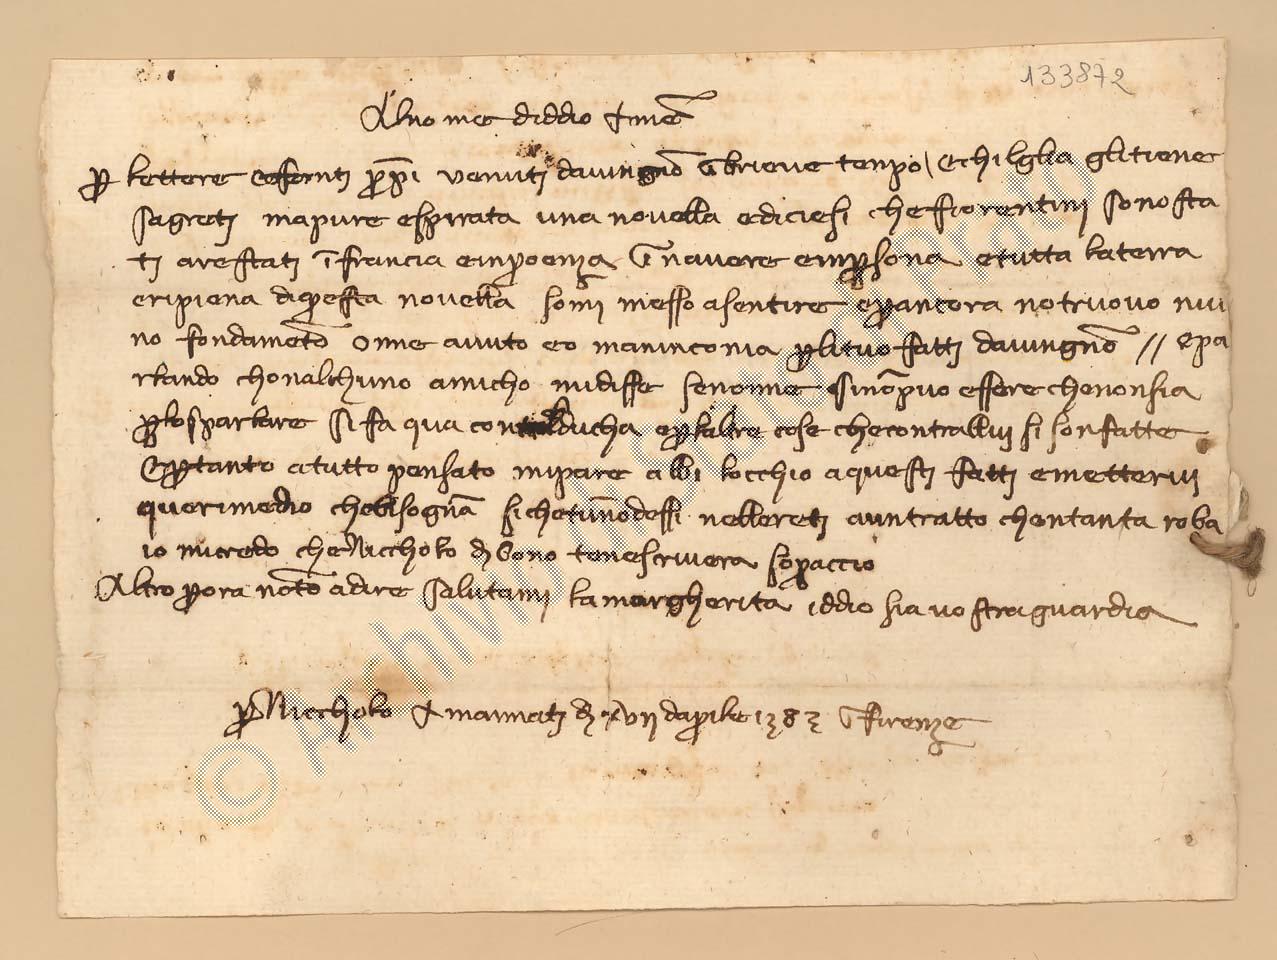 133872
Al no me di ddio Amē
ꝑ lettere e fornti ꝓpi venuti da vingnō ī brieve tenpo / e chi lglia gli tiene
sagreti ma pure e spirata una novella e diciesi che fiorentini sono sta
ti arestati ī francia e in proenza ī navere e in ꝑsona e tutta la terra
e ripiena di questa novella somi messo a sentire e ꝑ ancora no truovo niu
no fondamētō one avuto e o maninconia ꝑ li tuo fatti da vingnō // e pa
rlando chon alchuno amicho mi disse se none si nō puo essere che non sia
ꝑ lo sparlare si fa qua con ducha e ꝑ l altre cose che contra llui si son fatte
e ꝑ tanto a tutto pensato mi pare abbi l occhio a questi fatti e mettervi
que rimedio che bisogna si che tu nō dessi nelle reti a un tratto chon tanta roba
io mi credo che Niccholo di bono te ne scrivera sopraccio
Altro ꝑ ora nō to a dire salutami la margherita iddio sia vostra guardia
ꝑ Niccholo Ammannati dì xvij d aprile 1383 ī Firenze
© Archivio di Stato di Prato